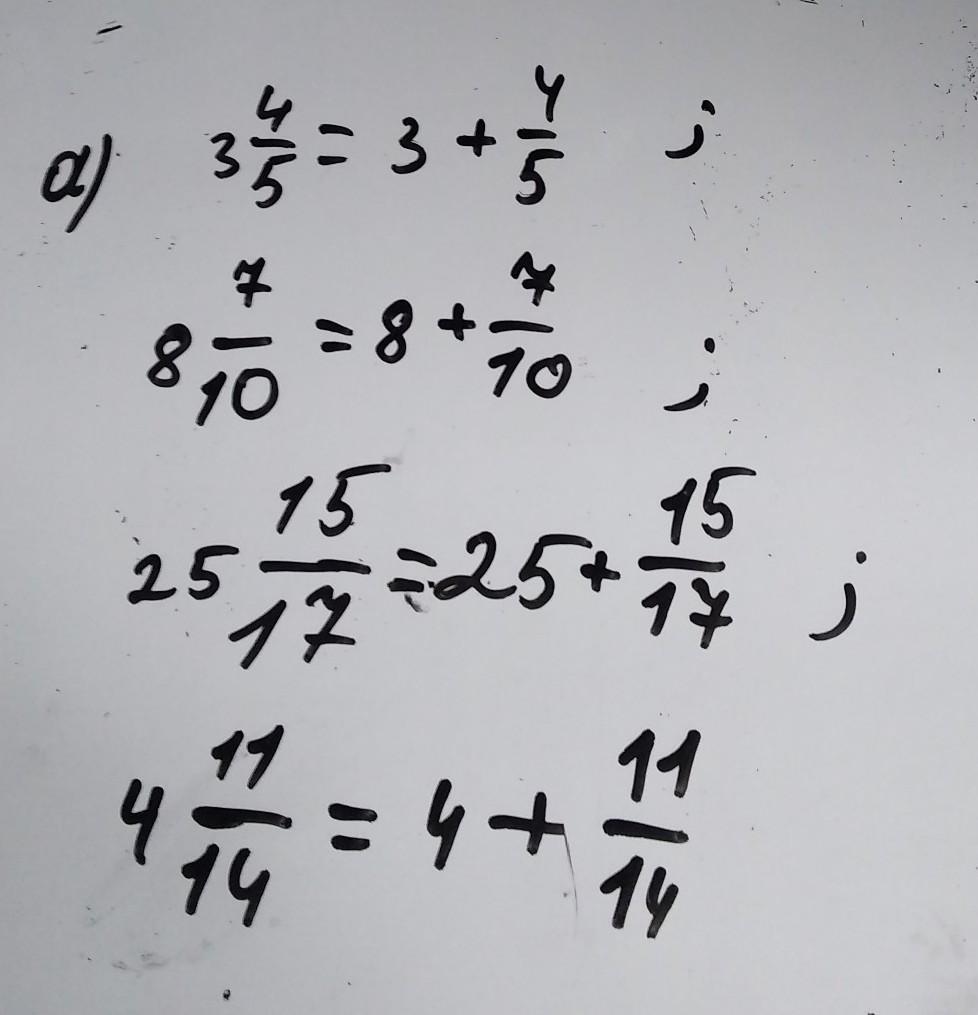 а) 3 4/5 = 3 + 4/5 ;
8 7/10 = 8 + 7/10 ;
25 15/17 = 25 + 15/17 ;
4 11/14 = 4 + 11/14